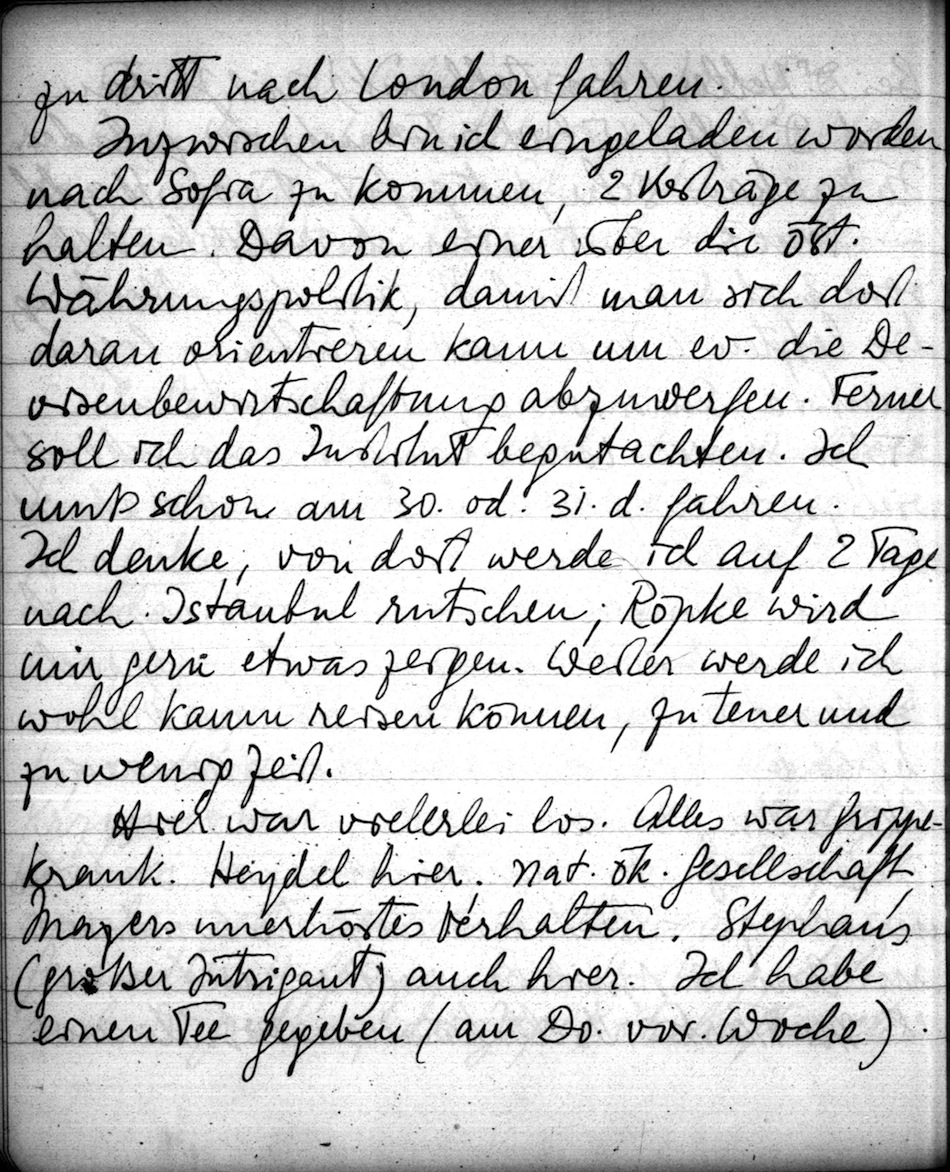 zu dritt nach London fahren.
Inzwischen bin ich eingeladen worden
nach Sofia zu kommen, 2 Vorträge zu
halten. Davon einer über die öst.
Währungspolitik, damit man sich dort
daran orientieren kann um ev. die De-
visenbewirtschaftung abzuwerfen. Ferner
soll ich das Institut begutachten. Ich
muß schon am 30. od. 31. d. fahren.
Ich denke, von dort werde ich auf 2 Tage
nach Istanbul rutschen; Röpke wird
mir gern etwas zeigen. Weiter werde ich
wohl kaum reisen können, zu teuer und
zu wenig Zeit.
Hier war vielerlei los. Alles war grippe-
krank. Heydel hier. Nat. ök. Gesellschaft,
Mayers unerhörtes Verhalten. Stephans
(großer Intrigant) auch hier. Ich habe
einen Tee gegeben (am Do. vor. Woche).